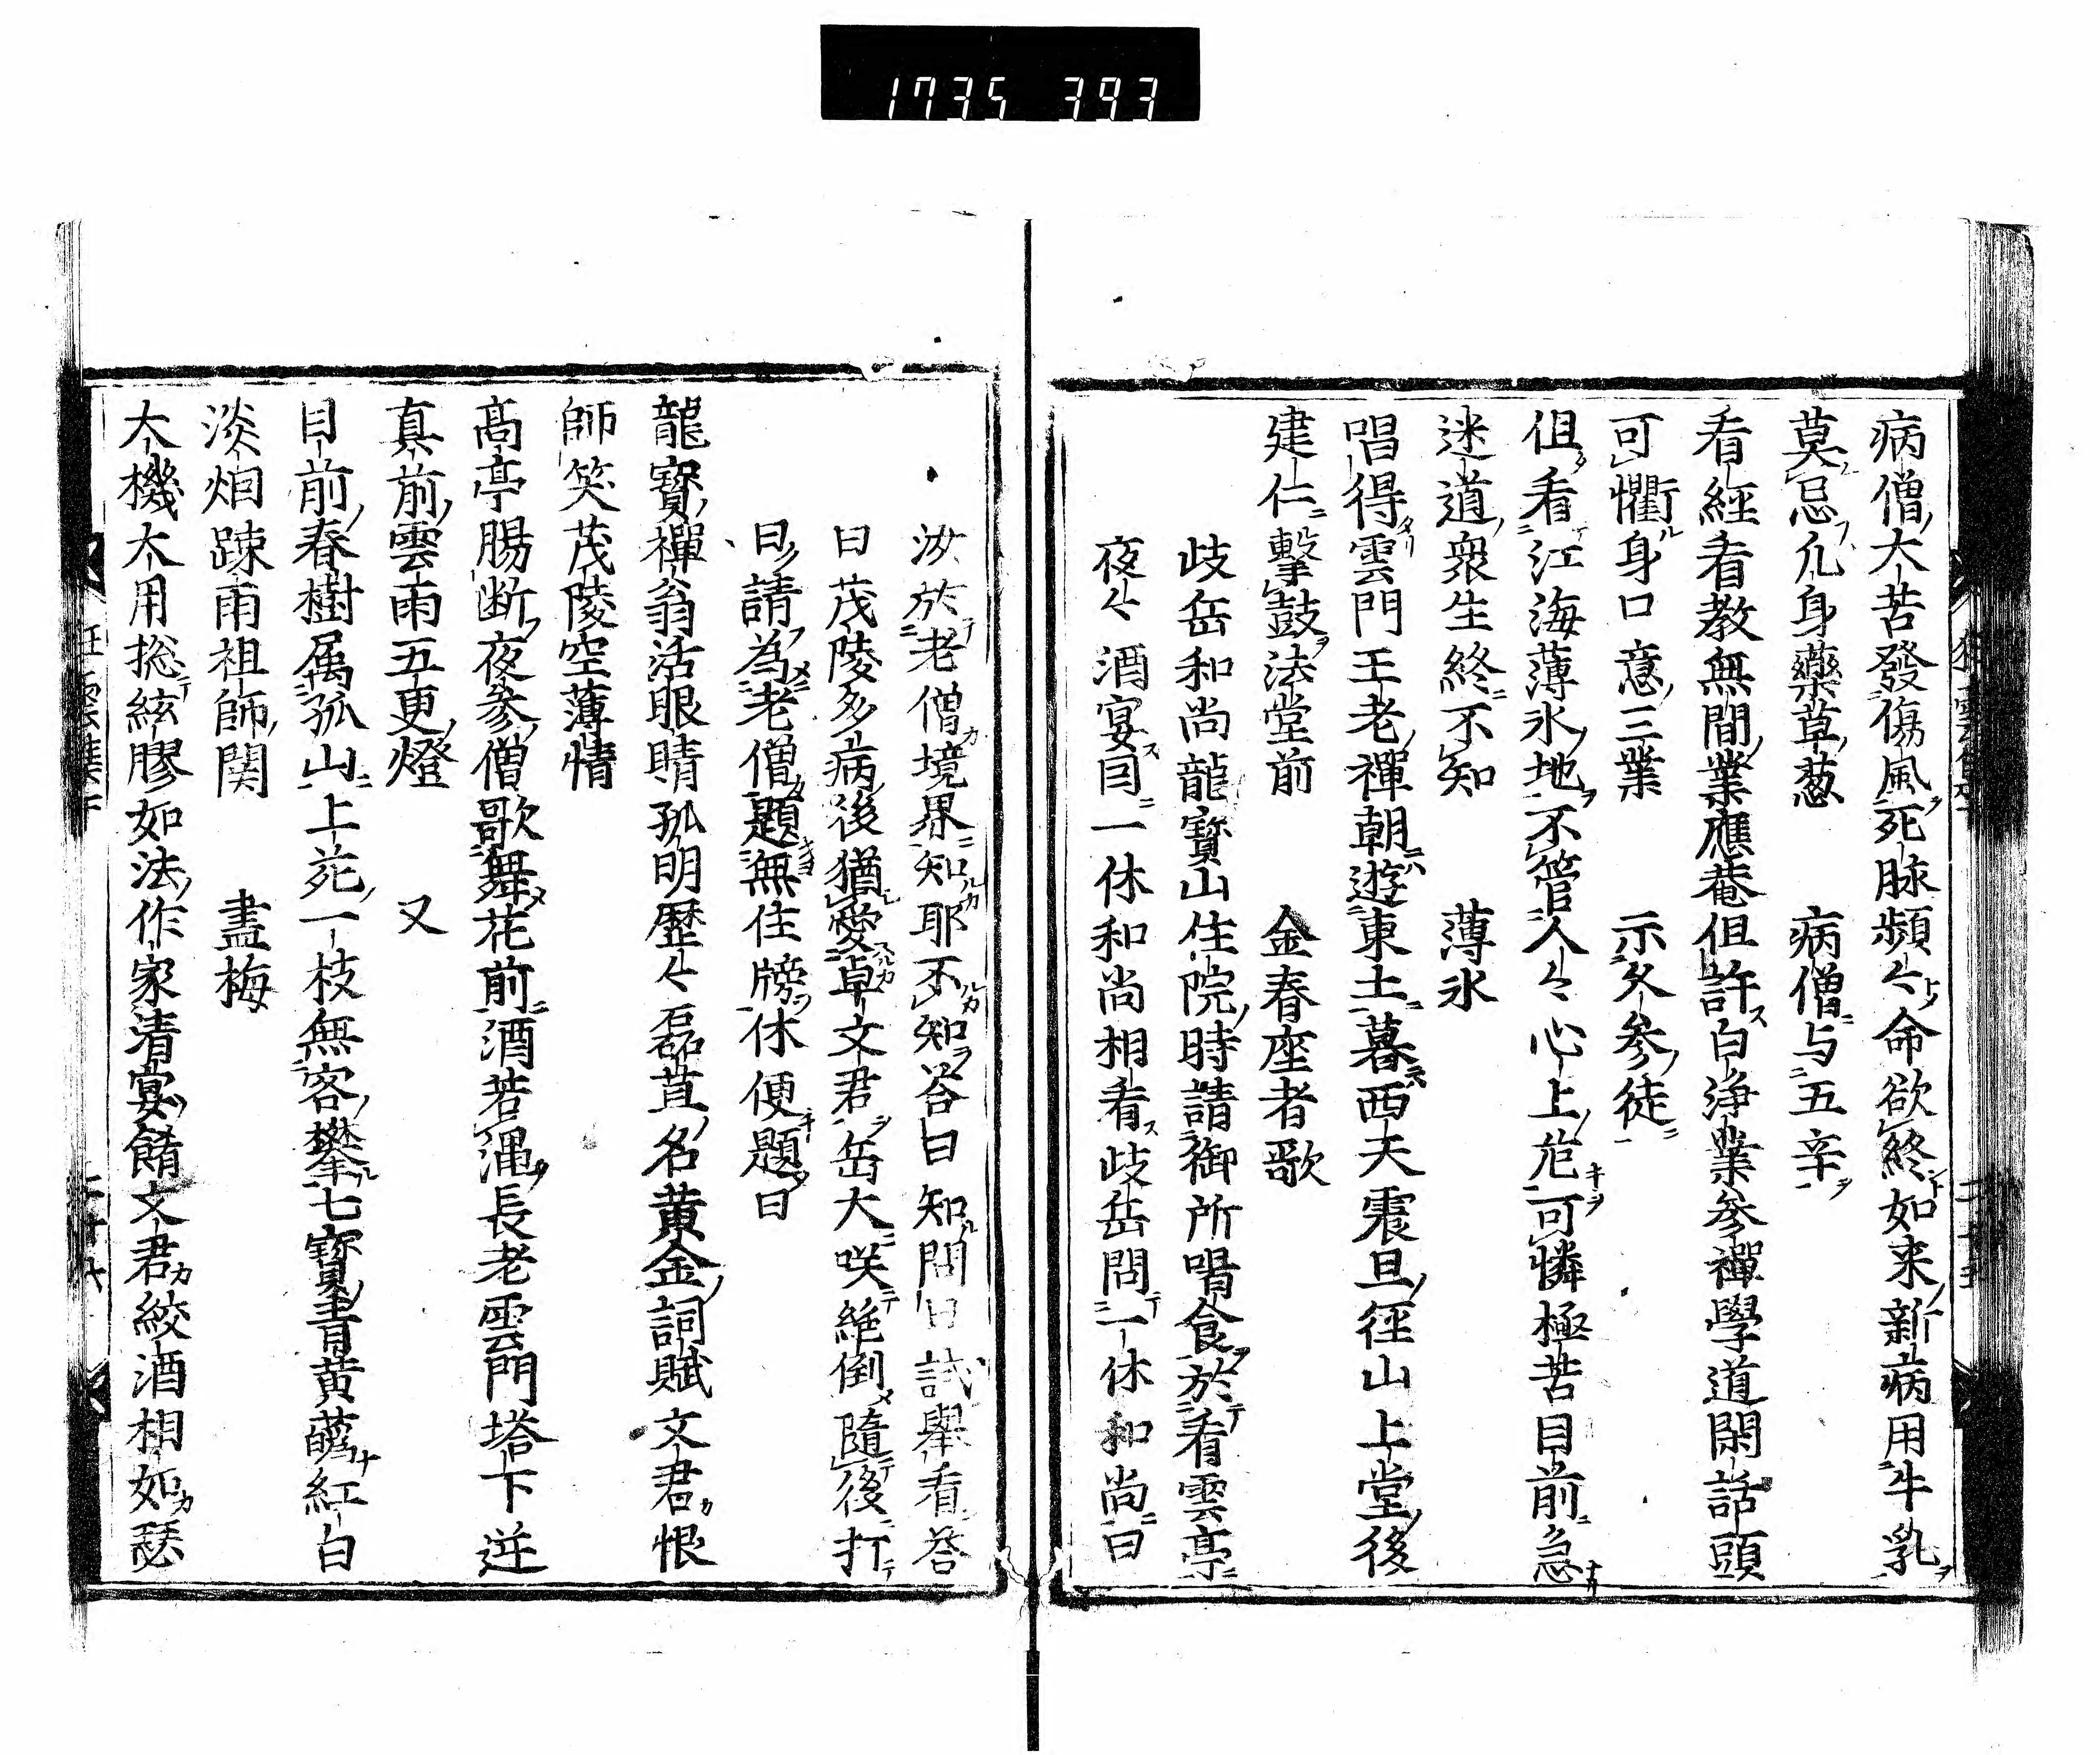 1735 393
病僧大苦發傷風死脉頻〻命欲終如来新病用牛乳
莫忌凢身藥草葱　病僧与五辛
看經看教無間業應菴但許白浄業参禪學道閑話頭
可懼身口意三業　示久参徒
但看江海薄氷地不管人〻心上危可憐極苦目前急
迷道衆生終不知　薄氷
唱得雲門王老禪朝遊東土暮西天震旦徑山上堂後
建仁擊鼓法堂前　金春座者歌
歧岳和尚龍寳山住院時請御所喟食於看雲亭
夜〻酒宴因一休和尚相看歧岳問一休和尚曰
汝於老僧境界知耶不知答曰知問曰試舉看答
曰茂陵多病後猶愛卓文君岳大咲絶倒隨後打
曰請為老僧題無住牓休便題曰
龍寳禪翁活眼睛孤明歴〻磊苴名黄金詞賦文君恨
師笑茂陵空薄情
髙亭腸断夜参僧歌舞花前酒若澠長老雲門塔下逆
真前雲雨五更燈　又
目前春樹属孤山上苑一枝無客攀七寳青黄蘸紅白
淡烟踈雨祖師関　畫梅
大機大用捴絃膠如法作家清宴餚文君絞酒相如瑟